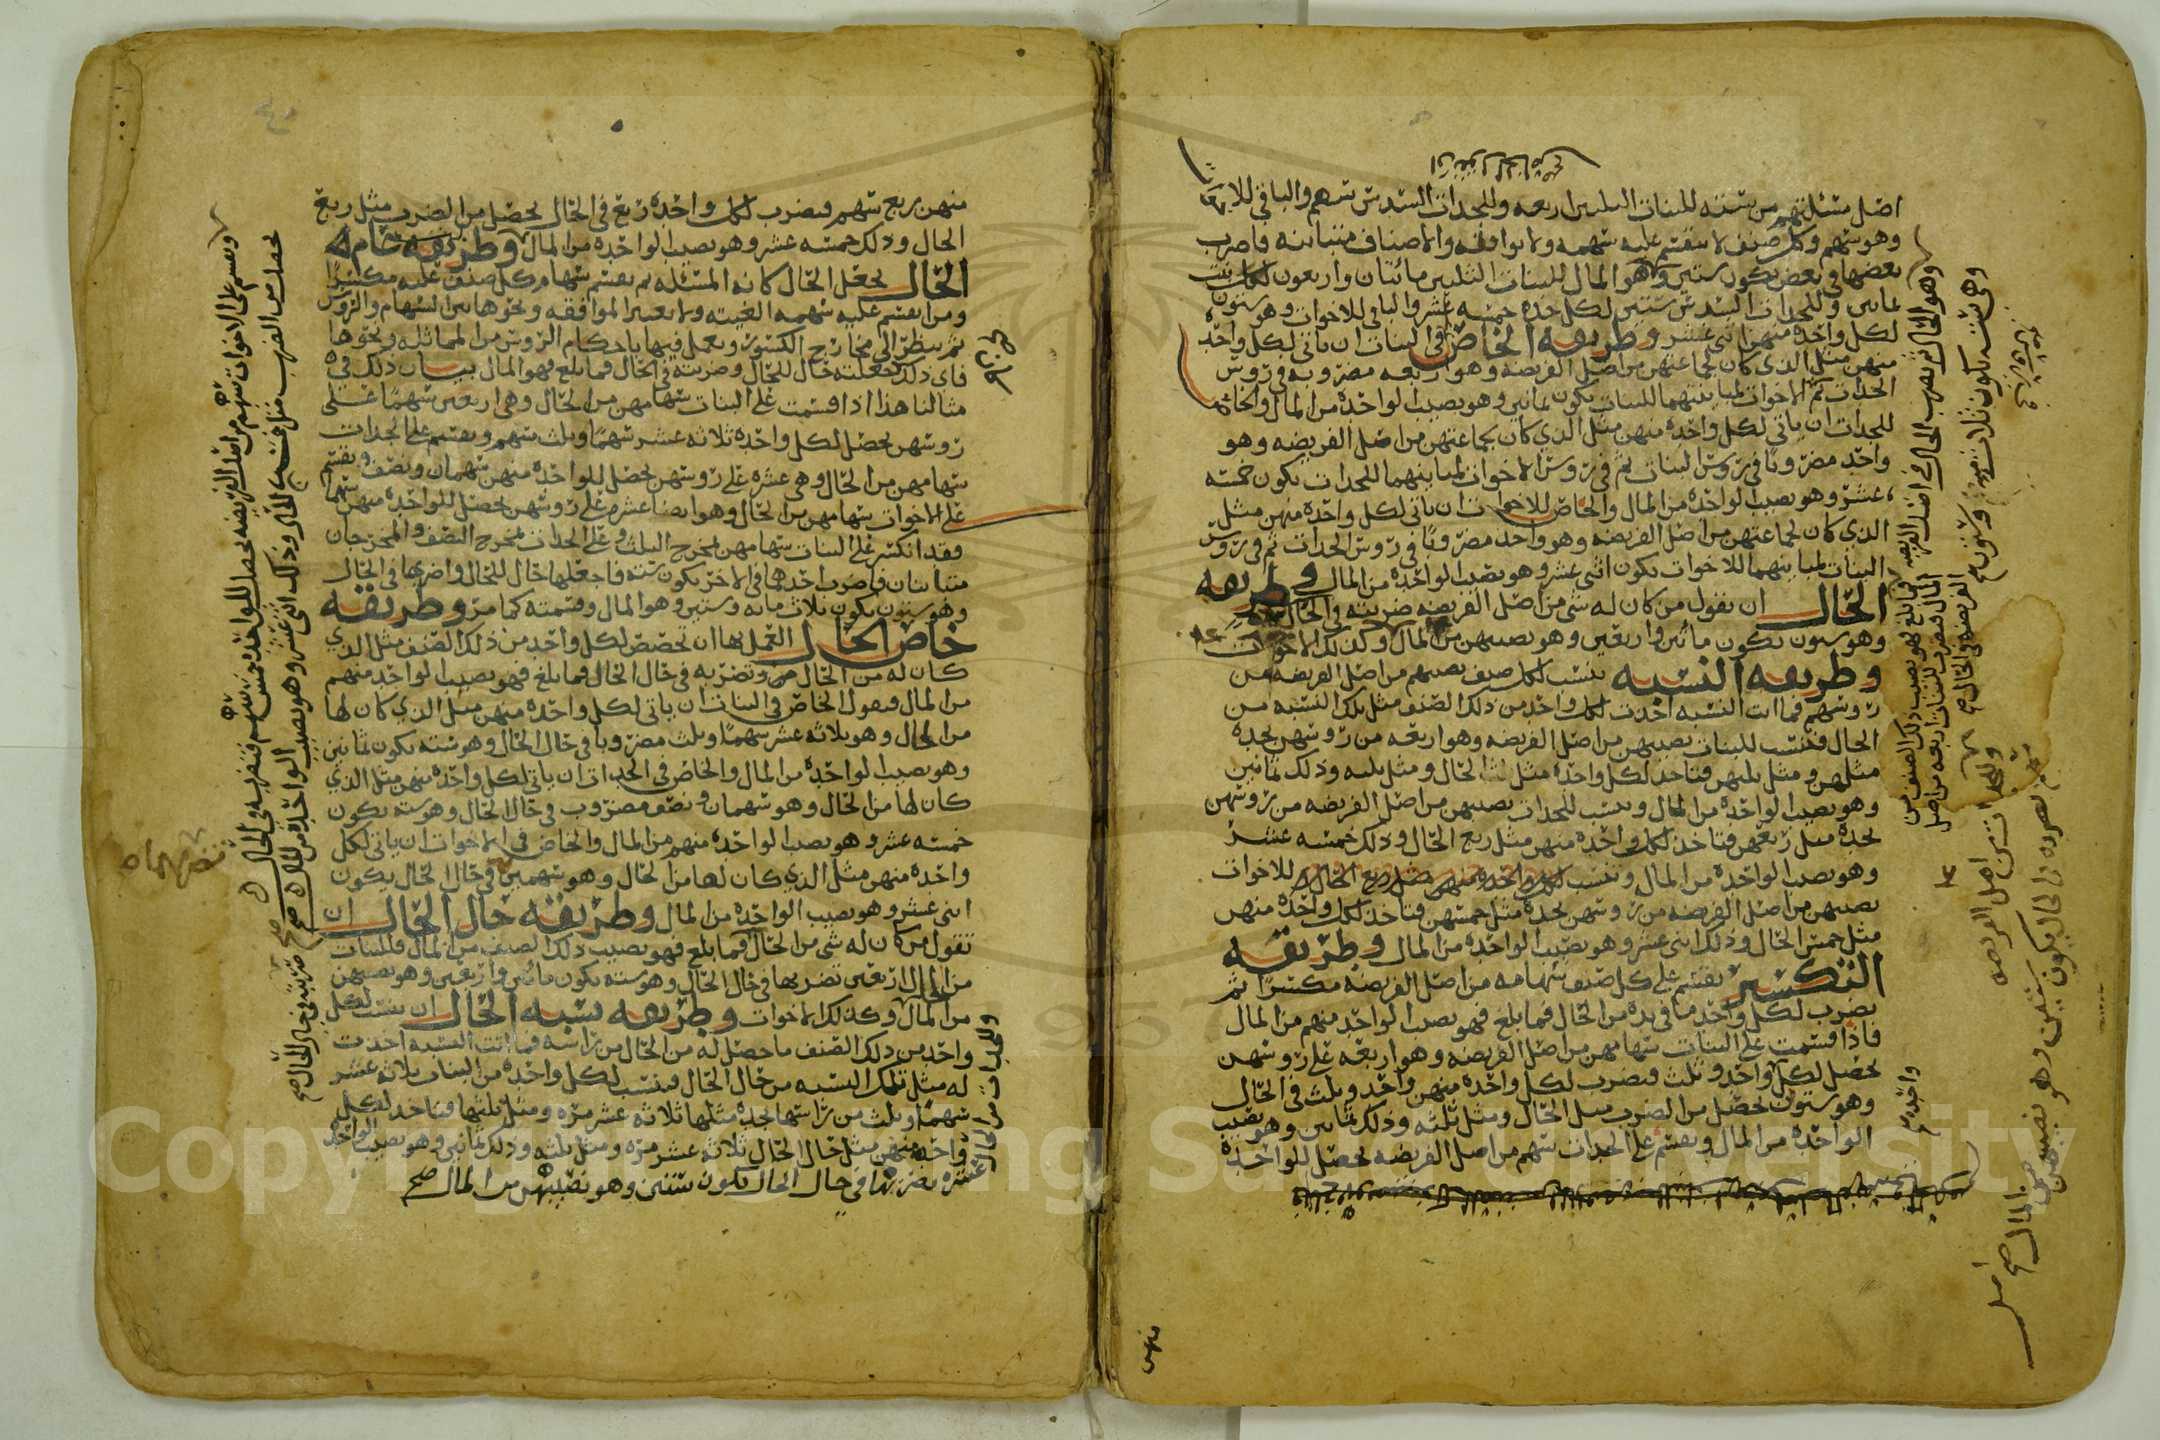 اصل مسئلتهم من سته للبنات الثلثين اربعه وللجدات السدس سهم والباقي للاخوات
وهو سهم وكل صنف لا ينقسم عليه سهمه ولا يوافقه والاصناف متباينه فاضرب
بعضها في بعض يكون ستين وهو المال للبنات الثلثين مائتان واربعون لكل بنت
ثمانين وللجدات السدس ستين لكل جده خمسه عشر والباقي للاخوات وهو ستون
لكل واحده منهن اثنى عشر وطريقه الخاص في البنات ان ياتي لكل واحده
منهن مثل الذي كان لجماعتهن من اصل الفريضه وهو اربعه مضروبه في روس
الجدات ثم الاخوات لمباينتهما للبنات يكون ثمانين وهو نصيب الواحده من المال والخاص
للجدات ان ياتي لكل واحده منهن مثل الذي كان لجماعتهن من اصل الفريضه وهو
واحد مضروبا في روس البنات ثم في روس الاخوات لمباينهما للجدات يكون خمسه
عشر وهو نصيب الواحده من المال والخاص للاخوات ان ياتي لكل واحده منهن مثل
الذي كان لجماعتهن من اصل الفريضه وهو واحد مضروبا في روس الجدات ثم في روس
البنات لمباينهما للاخوات يكون اثنى عشر وهو نصيب الواحده من المال وطريقه
الحال ان يقول من كان له شي من اصل الفريضه ضربته في الحال
وهو ستون يكون مائتين واربعين وهو نصيبهن من المال وكذلك الاخوات
وطريقه النسبه تنسب لكل صنف نصيبهم من اصل الفريضه من
روسهم فما اتت النسبه اخذت لكل واحد من ذلك الصنف مثل تلك النسبه من
الحال فتنسب للبنات نصيبهن من اصل الفريضه وهو اربعه من روسهن تجده
مثلهن ومثل ثلثهن فتاخذ لكل واحده مثل الحال ومثل ثلثه وذلك ثمانين
وهو نصيب الواحده من المال وتنسب للجدات نصيبهن من اصل الفريضه من روسهن
تجده مثل ربعهن فتاخذ لكل واحده منهن مثل ربع الحال وذلك خمسه عشر
وهو نصيب الواحده من المال وتنسب للاخوات
نصيبهن من اصل الفريضه من روسهن تجده مثل خمسهن فتاخذ لكل واحده منهن
مثل خمس الحال وذلك اثنى عشر وهو نصيب الواحده من المال وطريقه
التكسير يقسم على كل صنف سهامه من اصل الفريضه مكسرا ثم
يضرب لكل واحد ما في يده من الحال فما بلغ فهو نصيب الواحد منهم من المال
فاذا قسمت على البنات سهامهن من اصل الفريضه وهو اربعه على روسهن
يحصل لكل واحد وثلث فيضرب لكل واحده منهن واحد وثلث في الحال
وهو ستون يحصل من الضرب مثل الحال ومثل ثلثه وذلك ثمانين وهو نصيب
الواحده من المال ويقسم على الجدات سهم من اصل الفريضه يحصل للواحده
منهن
وهو الحال ثم يضرب الحال في اصل الفريضه
وهي ست يكون ثلاث ميه وستون
فما بلغ فهو نصيب ذلك الصنف من
المال فيضرب للبنات اربعه من اصل
الفريضه في الحال صح
وللجدات سهم من اصل الفريضه
تضربه في الحال يكون ستين وهو نصيبهن
من المال صح اصل
واحده
منهن ربع سهم فيضرب لكل واحده ربع في الحال يحصل من الضرب مثل ربع
الحال وذلك خمسه عشر وهو نصيب الواحده من المال وطريقه عام
الحال يجعل الحال كانه المسئله ثم يقسم سهام كل صنف عليه مكسرا
ومن انقسم عليه سهمه الغيته ولا يعتبر الموافقه ونحوها بين السهام والروس
ثم ينظر الى مخارج الكسور ويعمل فيها باحكام الروس من المماثله ونحوها
فاي ذلك جعلته حال للحال وضربته في الحال فما بلغ فهو المال بيان ذلك في
مثالنا هذا اذا قسمت على البنات سهامهن من الحال وهي اربعين سهما على
روسهن يحصل لكل واحده ثلاثه عشر سهما وثلث سهم ويقسم على الجدات
سهامهن من الحال وهي عشره على روسهن يحصل للواحده منهن سهمان ونصف ويقسم
على الاخوات سهامهن من الحال وهو ايضا عشره على روسهن يحصل للواحده منهن سهما
فقد انكسر على البنات سهامهن مخرج الثلث وعلى الجدات مخرج النصف والمخرجان
متباينان فاضرب احدهما في الاخر يكون سته فاجعلها حال للحال واضربها في الحال
وهو ستون يكون ثلاث مائه وستين وهو المال وقسمته كما مر وطريقه
خاص الحال العمل بها ان تخصص لكل واحد من ذلك الصنف مثل الذي
كان له من الحال وتضربه في حال الحال فما بلغ فهو نصيب الواحد منهم
من المال فيقول الخاص في البنات ان ياتي لكل واحده منهن مثل الذي كان لها
من الحال وهو ثلاثه عشر سهما وثلث مضروبا في حال الحال وهو سته يكون ثمانين
وهو نصيب الواحده من المال والخاص في الجدات ان ياتي لكل واحده منهن مثل الذي
كان لها من الحال وهو سهمان ونصف مضروب في حال الحال وهو سته يكون
خمسه عشر وهو نصيب الواحده منهم من المال والخاص في الاخوات ان ياتي لكل
واحده منهن مثل الذي كان لها من الحال وهو سهمين في حال الحال يكون
اثنى عشر وهو نصيب الواحده من المال وطريقه حال الحال ان
تقول من كان له شي من الحال فما بلغ فهو نصيب ذلك الصنف من المال فللبنات
من الحال اربعين تضربها في حال الحال وهو سته يكون مائتين واربعين وهو نصيبهن
من المال وكذلك الاخوات وطريقه نسبه الحال ان ينسب لكل
واحد من ذلك الصنف ما حصل له من الحال من راسه فما اتت النسبه اخذت
له مثل تلك النسبه من حال الحال فينسب لكل واحده من البنات ثلاثه عشر
سهما وثلث من راسها تجده مثلها ثلاثه عشر مره ومثل ثلثها فتاخذ لكل
واحده منهن مثل حال الحال ثلاثه عشر مره ومثل ثلثه وذلك ثمانين وهو نصيب الواحده
وللجدات من الحال
عشره تضربها في حال الحال يكون ستين وهو نصيبهن من المال صح
ويقسم على الاخوات سهم من اصل الفريضه يحصل للواحده خمس سهم فتضربه في الحال
يحصل من الضرب مثل خمس الحال وذلك اثنى عشر وهو نصيب الواحده من المال صح
ضربته في حال الحال صح